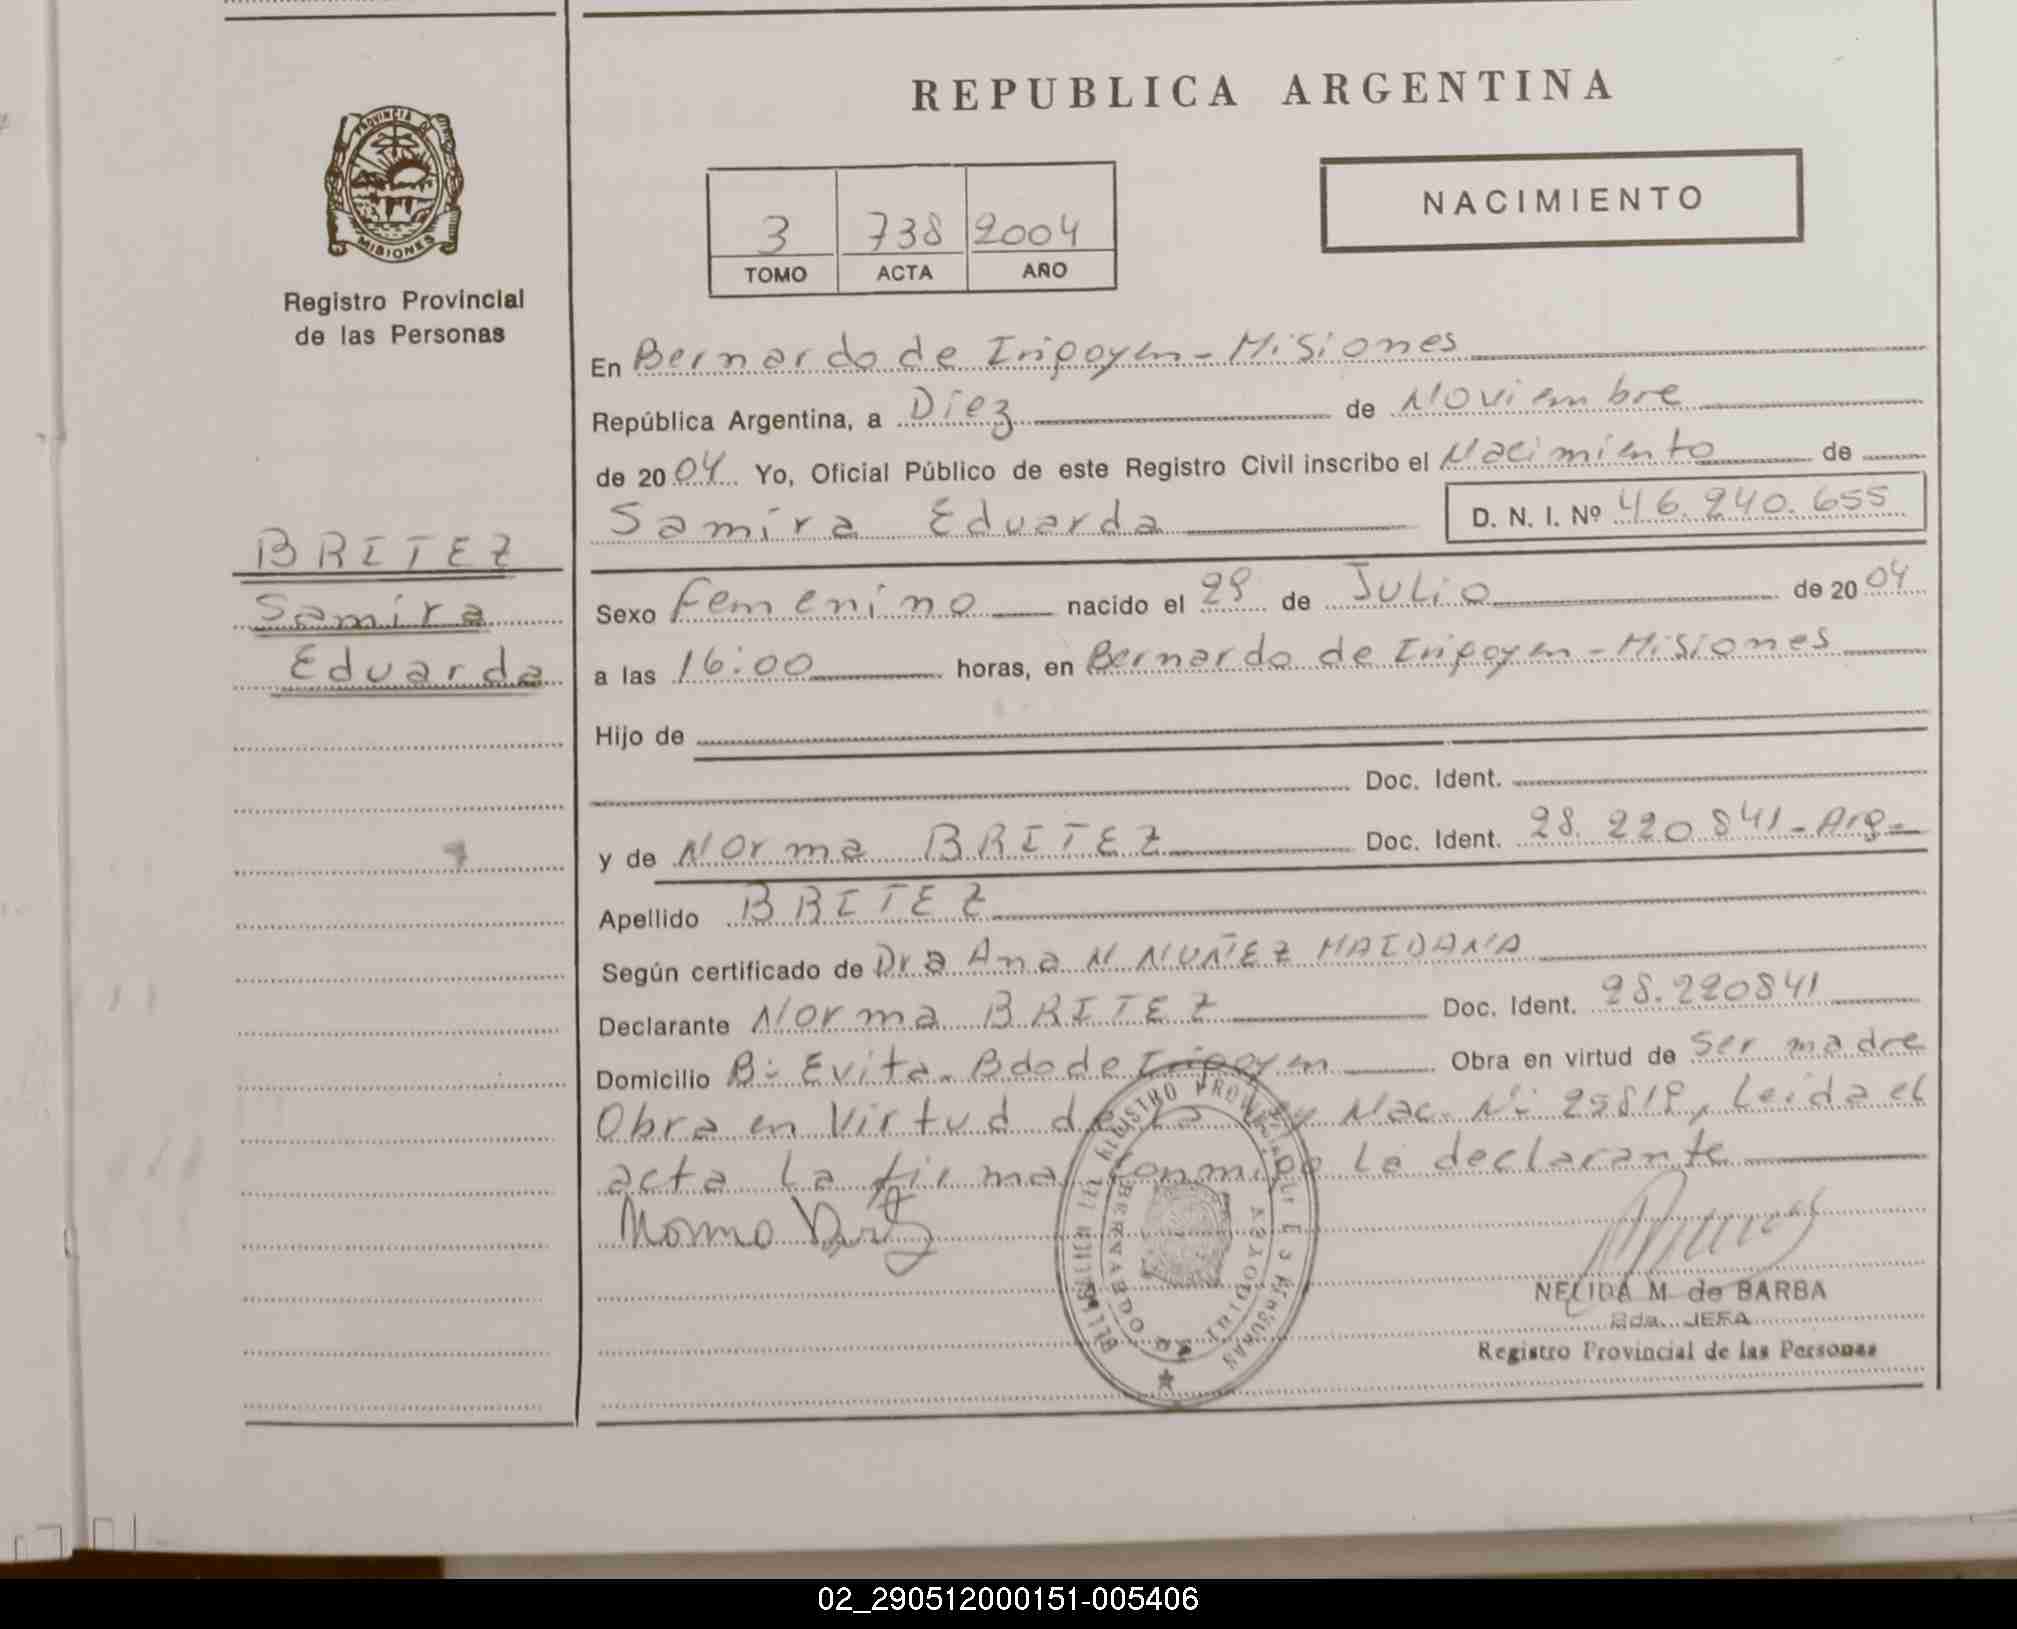 REPUBLICA ARGENTINA
PROVINCIA DE
MISIONES
Registro Provincial
de las Personas
3 738 2004
TOMO ACTA AÑO
NACIMIENTO
En Bernardo de Irigoyen - Misiones
República Argentina, a Diez de Noviembre
de 2004 Yo, Oficial Público de este Registro Civil inscribo el Nacimiento de
Samira Eduarda D. N. I. Nº 46.240.655
BRITEZ
Samira
Eduarda
Sexo Femenino nacido el 29 de Julio de 2004
a las 16:00 horas, en Bernardo de Irigoyen - Misiones
Hijo de
Doc. Ident.
y de Norma BRITEZ Doc. Ident. 28.220841 - Arg -
Apellido BRITEZ
Según certificado de Dra Ana N NUÑEZ MAIDANA
Declarante Norma BRITEZ Doc. Ident. 28.220841
Domicilio B: Evita - Bdo de Irigoyen Obra en virtud de Ser madre
Obra en Virtud de La Ley Nac. N: 25819, Leida el
acta La firma conmigo La declarante
NELIDA M. de BARBA
JEFA
Registro Provincial de las Personas
02_290512000151-005406